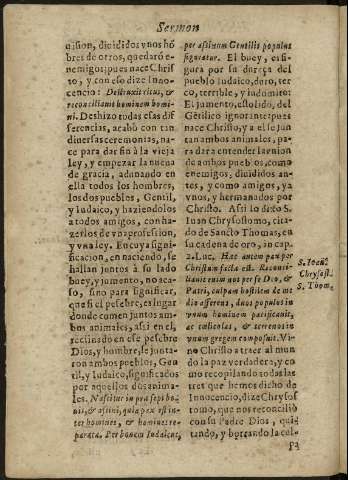 Sermon
uision, diuididos vnos hõ
bres de otros, quedarõ e-
nemigos; pues nace Chris
to, y con eso dize Inno-
cencio: Destruxit ritus, &
reconcilians hominem homi-
ni. Deshizo todas esas dif
ferencias, acabò con tan
diuersas ceremonias, na-
ce para dar fin à la vieja
ley, y empezar la nueua
de gracia, adunando en
ella todos los hombres,
los dos pueblos, Gentil,
y Iudaico, y haziendolos
a todos amigos, con ha-
zerlos de vna profession,
y vna ley. En cuya signi-
ficacion, en naciendo, se
hallan juntos à su lado
buey, y jumento, no aca-
so, sino para significar,
que si el pesebre, es lugar
donde comen juntos am-
bos animales, asi en el,
reclinado en ese pesebre
Dios, y hombre, se junta-
ron ambos pueblos, Gen-
til, y Iudaico, significados
por aquellos dos anima-
les. Nascitur in præsepi bo-
uis, & asini, quia pax est in-
ter homines, & homines re-
parata. Per bouem Iudaicus,
per asinum Gentilis populus
figuratur. El buey, es fi-
gura por su dureça del
pueblo Iudaico, duro, ter
co, terrible, y indomito:
El jumento, estolido, del
Gẽtilico ignorante; pues
nace Christo, y a el se jun
tan ambos animales, pa-
ra dar a entender la vnion
de ambos pueblos, como
enemigos, diuididos an-
tes, y como amigos, ya
vnos, y hermanados por
Christo. Assi lo dixo S.
Iuan Chrysostomo, cita-
do de Sancto Thomas, en
su cadena de oro, in cap.
2. Luc. Hac autem pax per
Christum facta est. Reconci-
liauit enim nos per se Deo, &
Patri, culpam hostilem de me
dio afferens, duos populos in
vnum hominem pacificauit,
ac cælicolas, & terrenos in
vnum gregem composuit. Vi-
no Christo a traer al mun
do la paz verdadera, y co
mo recopilando todas las
tres que hemos dicho de
Innocencio, dize Chrysos
tomo, que nos reconciliò
con su Padre Dios, qui-
tando, y borrando la cul-
pa
S. Ioañ.
Chrysost.
S. Thom.